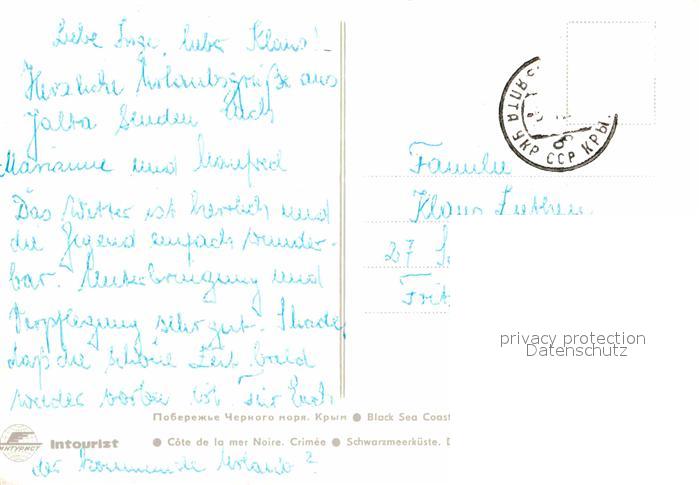 Liebe Inge, lieber Klaus!
Herzliche Urlaubsgrüße aus
Jalta senden Euch
Marianne und Manfred
Das Wetter ist herrlich und
die Gegend einfach wunder-
bar. Unterbringung und
Verpflegung sehr gut. Schade,
daß die schöne Zeit bald
wieder vorbei ist. Für Euch
der kommende Urlaub?
ЯЛТА УКР ССР КРЫ.
Familie
Klaus
27
Frit
privacy protection
Datenschutz
Побережье Черного моря. Крым ● Black Sea Coast
ИНТУРИСТ Intourist ● Côte de la mer Noire. Crimée ● Schwarzmeerküste.